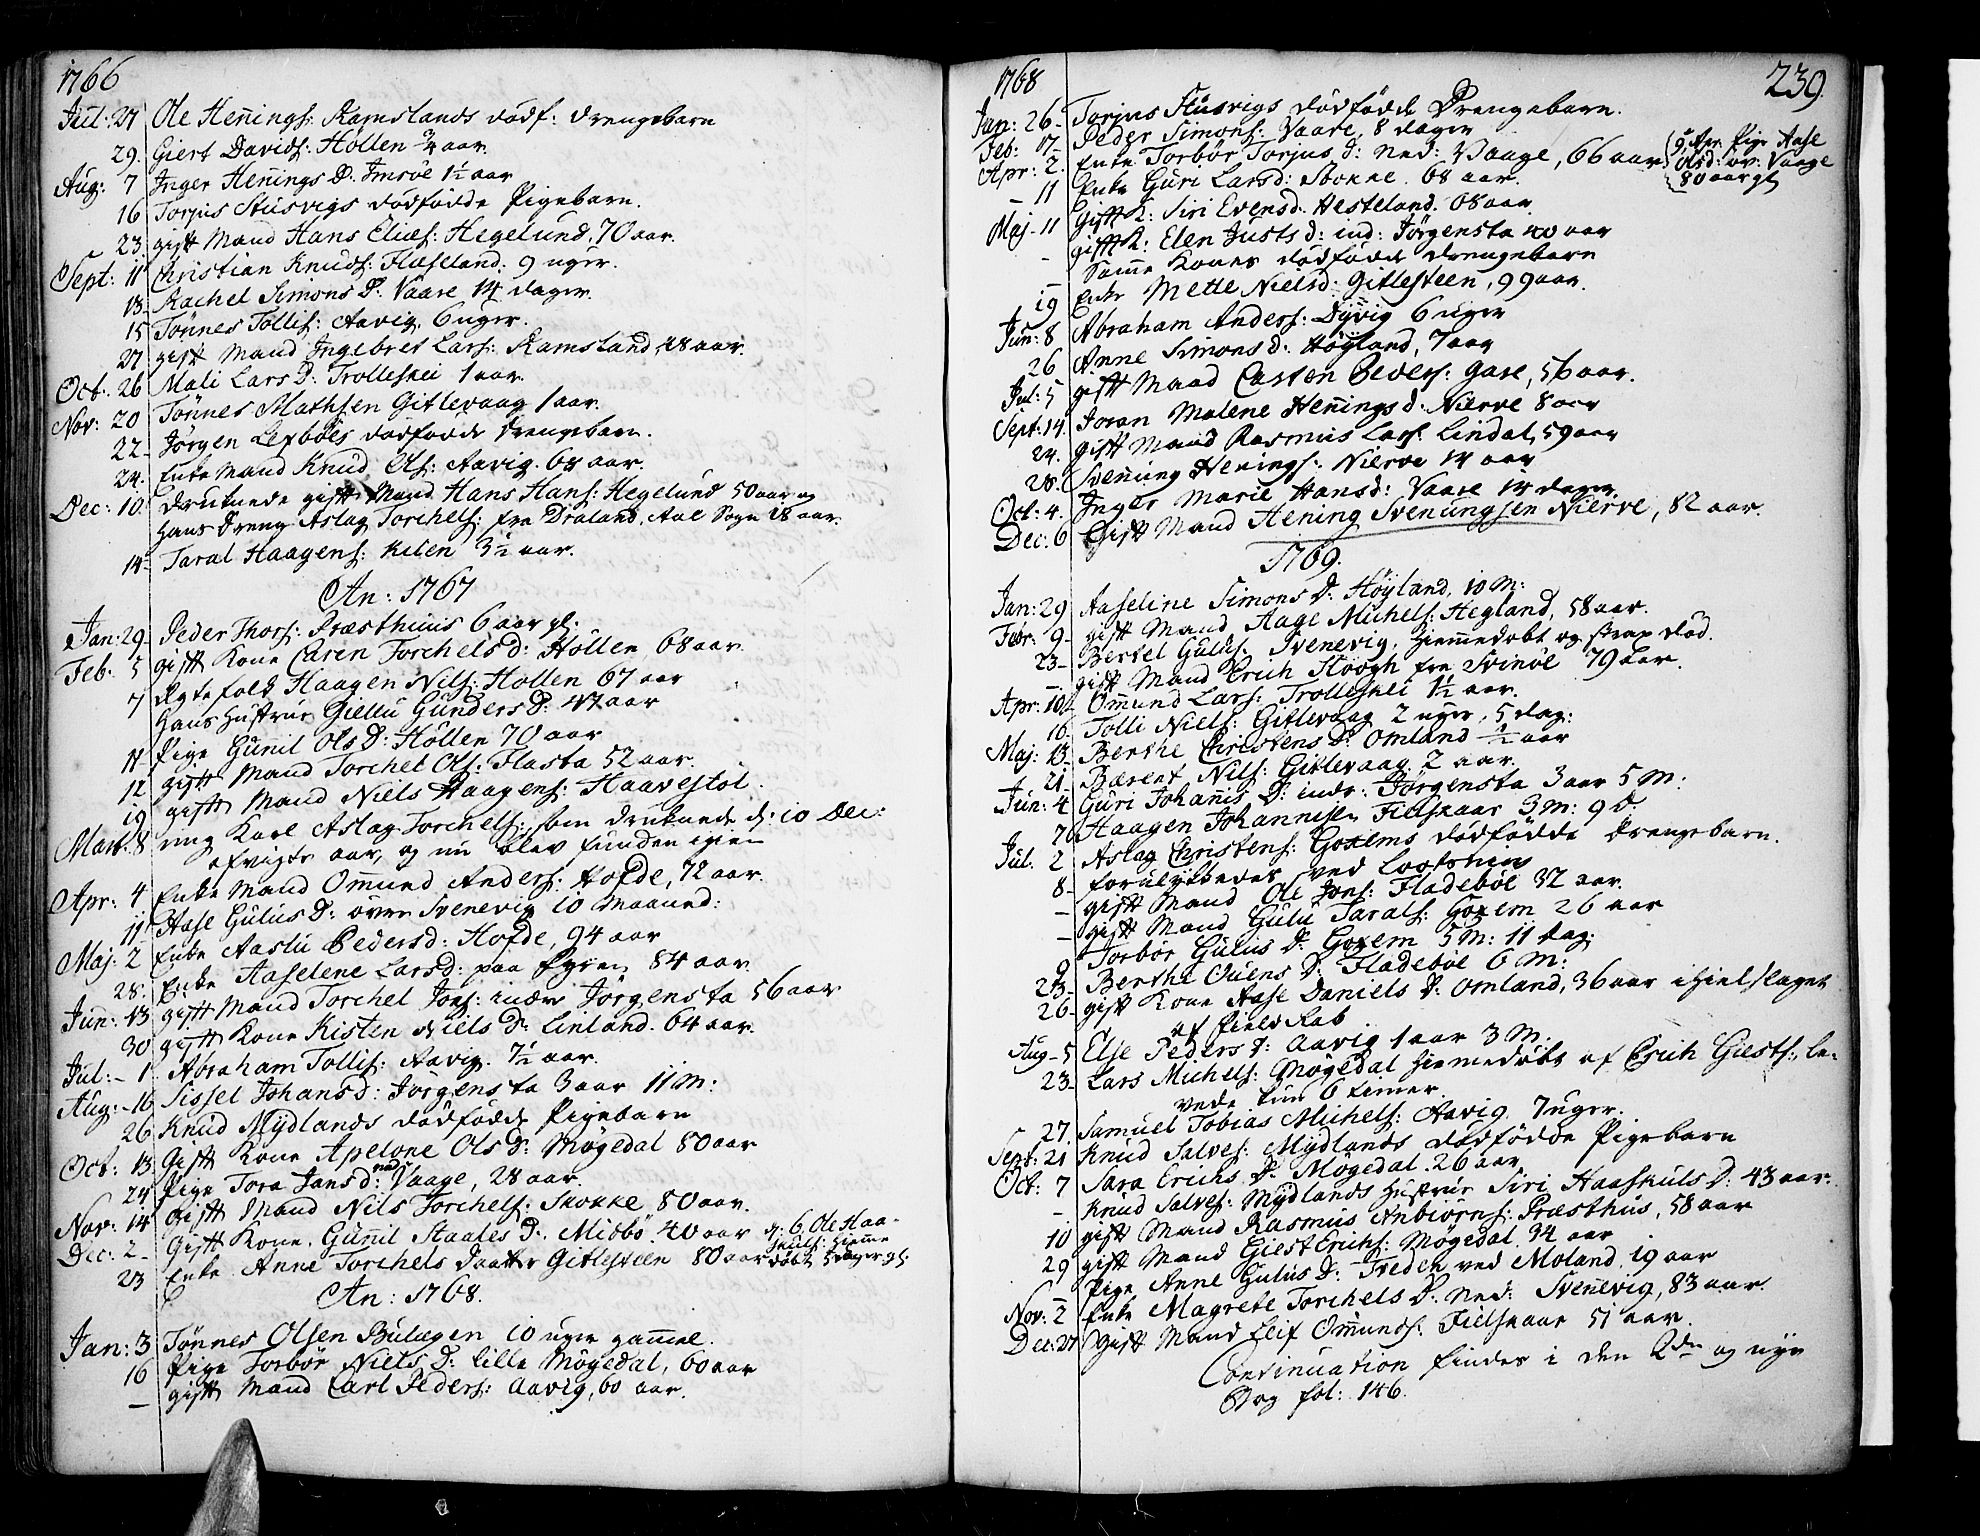 1766
Jul: 27 Ole Hennings: Ramslands dödf: drengebarn
29. Giert Davids: Höllen 3/4 aar.
Aug: 7 Inger Hennings D: Imsöe 1 1/2 aar
16 Torjus Stusvigs dödfödde Pigebarn.
23. gift Mand Hans Eliæs: Hegelund, 70 aar.
Sept: 11 Christian Knuds: Flæseland: 9 uger.
13. Rachel Simons D: Vaare 14 dager.
15 Tönnes Tollis: Aavig. 6 uger.
27 gift Mand Ingebret Lars: Ramsland, 28 aar.
Oct: 26 Mali Lars D: Trolleskei 1 aar.
Nov: 20 Tönnes Mathsen Gitlevaag 1 aar.
22. Jörgen Lexböes dödfödde drengebarn.
24. Enke Mand Knud Ols: Aavig. 68 aar.
Dec: 10 druknede gift Mand Hans Hans: Hegelund 50 aar og
hans dreng Aslag Torchels: fra Draland, Aae Sogn 18 aar.
14 Taral Haagens: Kilen 3 1/2 aar.
An: 1767
Jan: 29. Peder Thors: Præsthuus 6 aar gl.
Feb: 5 gift Kone Caren Torchels D: Höllen 68 aar.
7 Ægtefolk Haagen Nils: Höllen 67 aar
hans Hustrue Giellu Gunders D: 47 aar
11 Pige Gunil Ols D: Höllen 70 aar
12 gift Mand Torchel Ols: Flasta 52 aar.
19 gift Mand Niels Haagens: Haavestöl.
Mart: 8 ung Karl Aslag Torchels: som druknede d: 10 Dec:
afvigte aar, og nu blev funden igien
Apr: 4 Enke Mand Ommund Anders: Hofde, 72 aar.
11 Aase Gulus D: övre Svenevig 10 Maaned:
Maj: 2 Enke Aaslu Peders D: Hofde, 94 aar
28. Enke Aaselene Lars d: paa Öyren 84 aar.
Jun: 13 gift Mand Torchel Jons: indre Jörgensta 56 aar
30 gift Kone Kisten Niels D: Linland. 64 aar.
Jul: - 1 Abraham Tollis: Aavig. 7 1/2 aar.
Aug: - 16 Sissel Johans d: Jorgensta 3 aar 11 M:
26 Knud Mydlands dödfödde Pigebarn
Oct: 13 Gift Kone Apelone Ols D: Mögedal 80 aar
24 Pige Tora Jans d: ned: Vaage, 28 aar.
Nov: 14 Gift Mand Nils Torchels: Skokke, 80 aar.
Dec: 2 Gift Kone. Gunil Staales D: Midbö. 40 aar d: 6. Ole Haa-
skuls: hiemme
23 Enke Anne Torchels Daatter Gitlesteen 80 aar döbt 5 dager gl.
An: 1768.
Jan: 3 Tönnes Olsen Bulægen 10 uger gammel.
16 Pige Torbör Niels D: lille Mögedal, 60 aar
– gift Mand Carl Peders: Aavig, 60 aar.
1768
239.
Jan: 26 - Torjus Stusvigs dödfödde Drengebarn.
Feb: 17 - Peder Simons: Vaare, 8 dager
Apr: 2. Enke Torbör Torjus D: Ned: Vaage, 66 aar {9 Apr. Pige Aase
Ols d: öv: Vaage
80 aar gl
– 11 Enke Guri Lars d: Skokke. 68 aar.
Maj - 11 Gift K: Siri Evens d: Hesteland. 68 aar
- gift K: Elen Justs d: ind: Jörgensta 40 aar
– Samme Kones dödfödde drengebarn
19 Enke Mette Niels d: Gitlesteen, 99 aar.
Jun: 8 Abraham Anders: Dyvig 6 uger
26 Anne Simons d: Höyland, 7 aar
Jul: 5 gift Mand Casten Evers: Gare, 56 aar.
Sept: 14. Joran Malene Hennings d: Nierve 8 aar
24. gift Mand Rasmus Lars: Lindal, 59 aar
28. Svenning Hennings: Nierve 14 aar
Oct: 4. Inger Marie Hans d: Vaare 14 dager
Dec: 6 Gift Mand Hening Svenungsen Nierve, 82 aar.
1769.
Jan: 29 Aaseline Simons D: Höyland, 10 M:
Febr: 9 - gift Mand Aage Michels: Hegland, 58 aar.
23 - Bertel Guls: Svenevig, hiemmedöbt og strax död.
–. gift Mand Erich Hoogh fra Svinöe 79 aar.
Apr: 10 - Ommund Lars: Trolleskei 1 1/2 aar.
16. Tolli Niels: Gitlevaag 2 uger, 5 dag:
Maj: 13. Berthe Christens D: Omland 1/2 aar
21. Bærent Nils: Gitlevaag. 2 aar.
Jun: 4 Guri Johannis D: indr: Jörgensta 3 aar 5 M:
7 Haagen Johannisen Fielskaar 3 M: 9 D.
Jul. 2 Aslag Christens: Goxems dödfödde drengebarn.
8 - forulykkedes ved Lootsning
– gift Mand Ole Jons: Fladeböe 32 aar.
– gift Mand Gulu Tarals: Goxem 26 aar
9 Torbör Gulus D: Goxem 5 M: 11 Dag:
23. Berthe Ouens D: Fladeböe 6 M:
26 - gift Kone Aase Daniels D: Omland, 36 aar ihielslaget
af fieldskab
Aug - 5 Else Peders D: Aavig 1 aar 3 M:
23 - Lars Michels: Mögedal hiemmedöbt af Erich Giests: le-
vede kun 6 timer.
27. Samuel Tobias Michels: Aavig. 7 uger.
Sept: 21 Knud Salves: Mydlands dödfödde Pigebarn
Oct: 7 Sara Erichs D: Mögedal. 26 aar
– Knud Salves: Mydlands hustrue Siri Haaskuls D: 43 aar.
10 gift Mand Rasmus Anbiörns: Præsthus, 58 aar
29 gift Mand Giest Erichs: Mögedal, 34 aar
– Pige Anne Gulus D: Treden ved Moland, 19 aar
Nov: 2 Enke Magrete Torchels D: Ned: Svennevig, 83 aar.
Dec: 27 Gift Mand Leif Ommunds: Fielskaar 51 aar.
Continuation findes i den 2den og nye
Bog fol: 146.